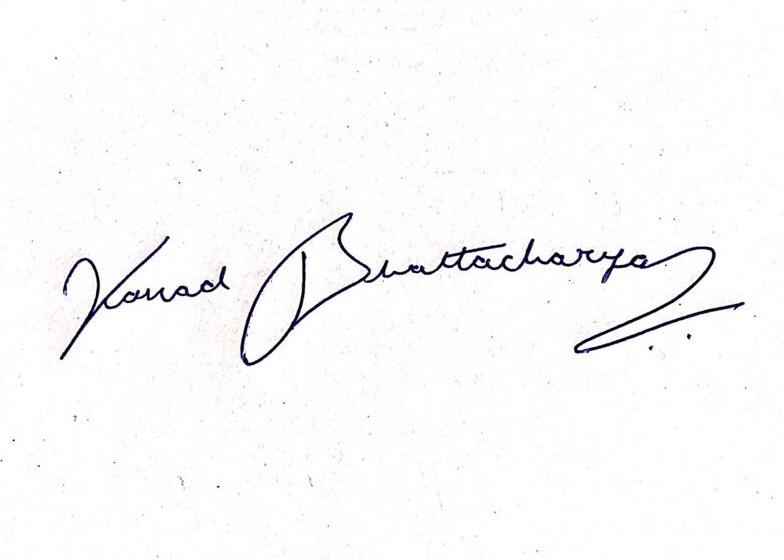 Kanad Bhattacharya